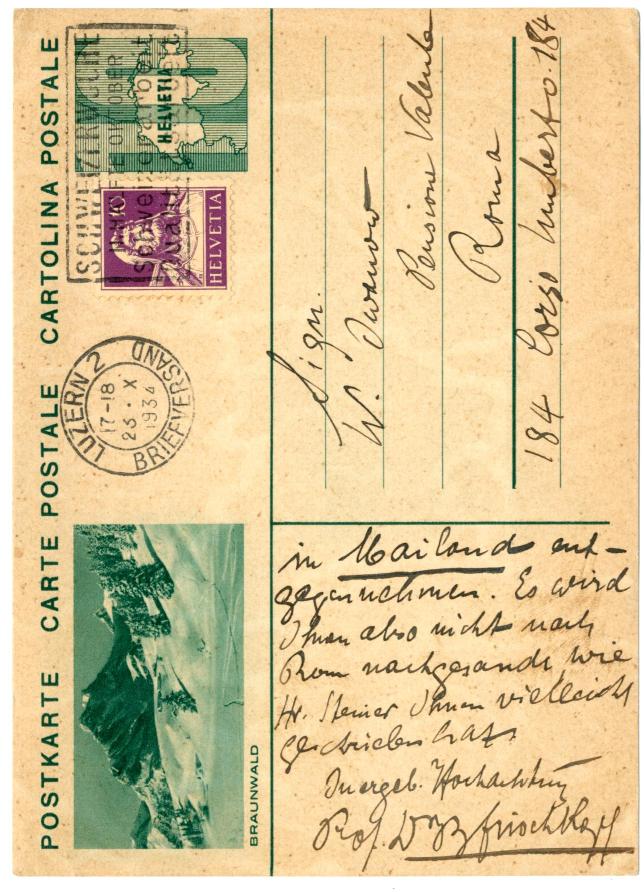 POSTKARTE CARTE POSTALE CARTOLINA POSTALE
HELVETIA
10
HELVETIA
LUZERN 2
17-18
23. X
1934
BRIEFVERSAND
BRAUNWALD
Sign.
W. Iwanow
Pensione Valente
Roma
184 Corso Umberto. 184
in Mailand ent-
gegennehmen. Es wird
Ihnen also nicht nach
Rom nachgesandt wie
Hr. Steiner Ihnen vielleicht
geschrieben hat.
In ergeb. Hochachtung
Prof.